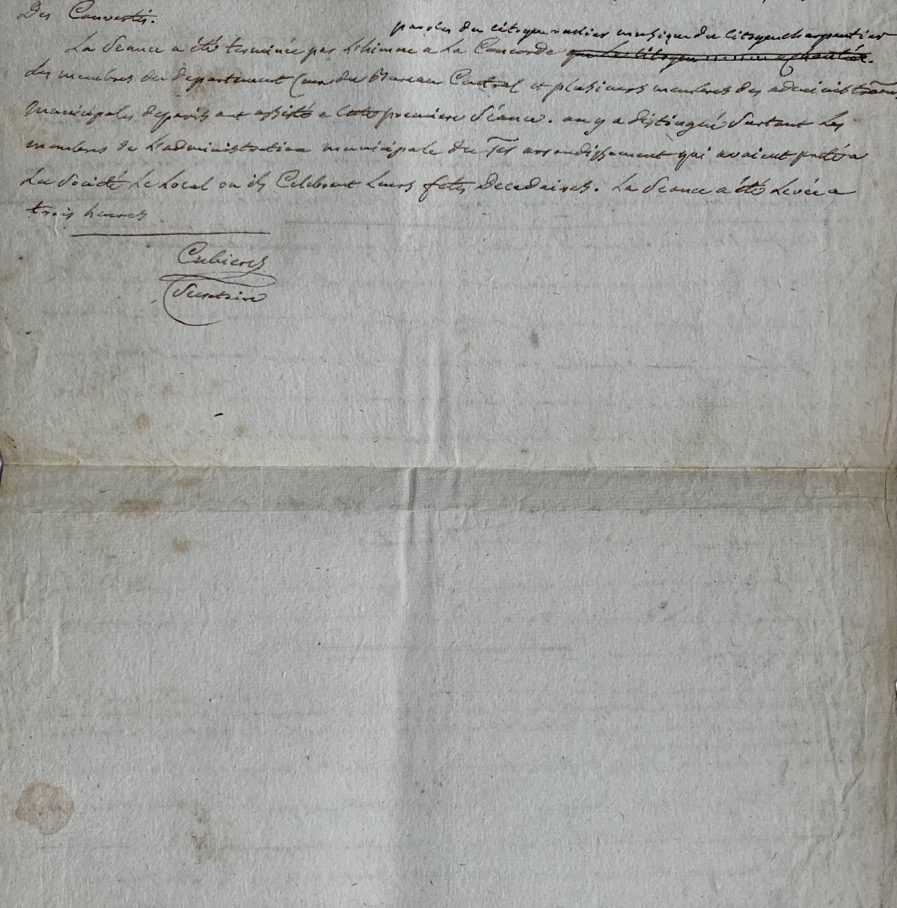 Des Couvertés.
paroles du citoyen radier musique du citoyen charpentier
La Seance a été terminée par L'himne a La Concorde que Le citoyen a chanté.
des membres du departement Ceux du Bureau Central et plusieurs membres des administrations
municipales de paris ont assisté a cette premiere Séance. on y a distingué surtout Les
membres de L'administration municipale du arrondissement qui avaient preté a
La Société Le Local ou ils Celebrent Leurs fetes Decadaires. La Seance a été Levée a
trois heures
Cubieres
Secretaire